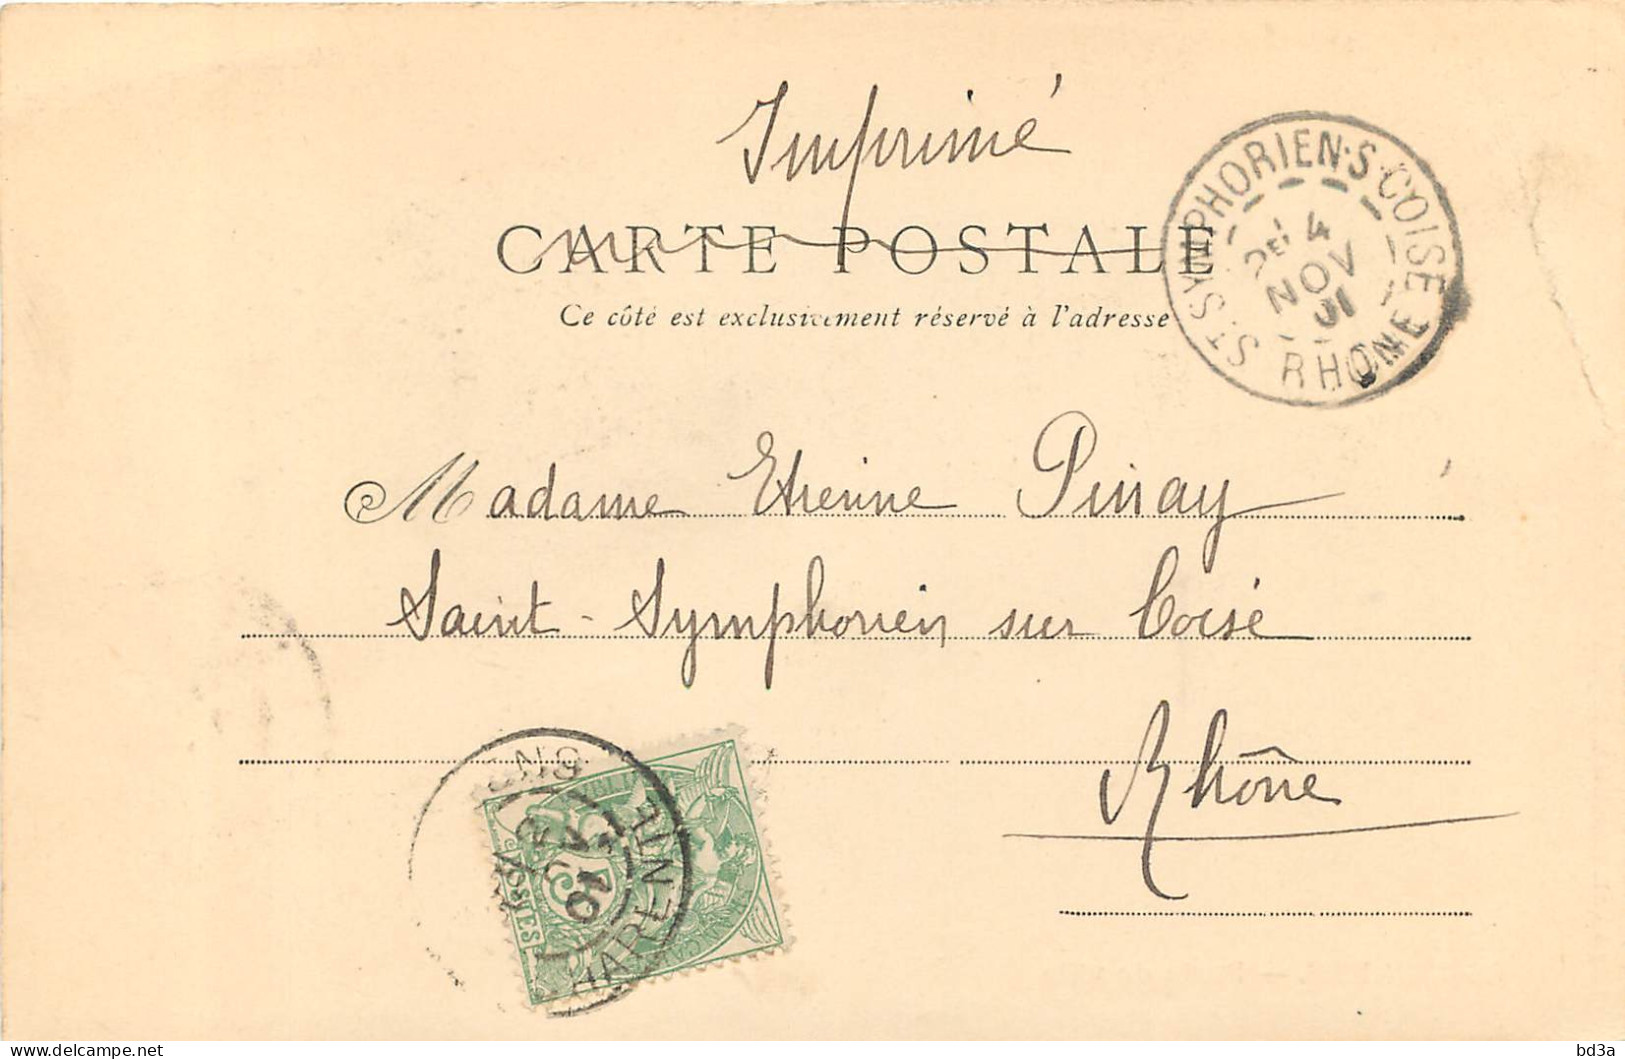 Imprimé
CARTE POSTALE
Ce côté est exclusivement réservé à l'adresse
ST SYMPHORIEN-S-COISE
4
NOV
01
RHONE
Madame Etienne Pinay
Saint-Symphorien sur Coise
Rhône
CHARENTE
5
POSTES
bd3a